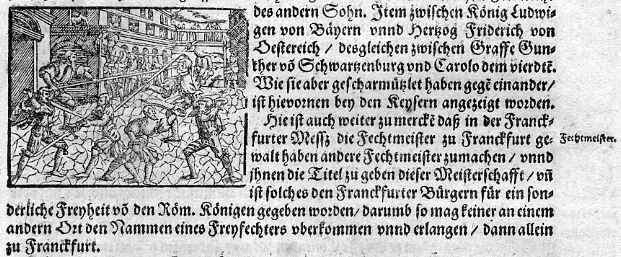 des andern Sohn. Item zwischen König Ludwi-
gen von Bäyern vnnd Hertzog Friderich von
Oestereich / desgleichen zwischen Graffe Gun-
ther võ Schwartzenburg vnd Carolo dem vierdtẽ.
Wie sie aber gescharmützlet haben gegẽ einander /
ist hievornen bey den Keysern angezeigt worden.
Hie ist auch weiter zu merckẽ daß in der Franck-
furter Messz die Fechtmeister zu Franckfurt ge-
walt haben andere Fechtmeister zumachen / vnnd
jhnen die Titel zu geben dieser Meisterschafft / vñ
ist solches den Franckfurter Bürgern für ein son-
derliche Freyheit võ den Röm. Königen gegeben worden / darumb so mag keiner an einem
andern Ort den Nammen eines Freyfechters vberkommen vnnd erlangen / dann allein
zu Franckfurt.
Fechtmeister.